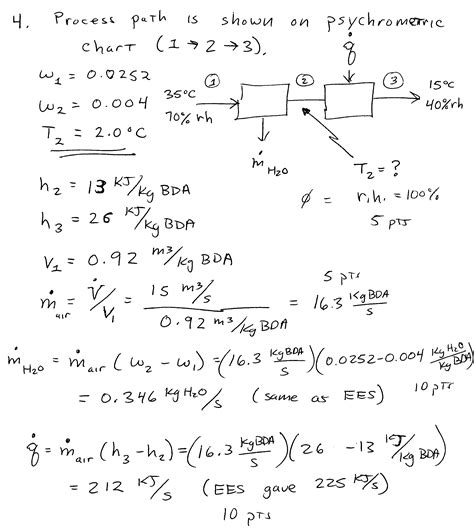 4. Process path is shown on psychrometric
chart (1 → 2 → 3).
ω₁ = 0.0252
ω₂ = 0.004
T₂ = 2.0°C
q̇
35°C
70% rh
①
②
③
15°C
40% rh
ṁ H₂O
T₂ = ?
ϕ = r.h. = 100%
5 pts
h₂ = 13 KJ/kg BDA
h₃ = 26 KJ/kg BDA
V₁ = 0.92 m³/kg BDA
ṁ air = V̇/V₁ = 15 m³/s / 0.92 m³/kg BDA = 16.3 kg BDA/s
5 pts
ṁ H₂O = ṁ air (ω₂ - ω₁) = (16.3 kg BDA/s)(0.0252 - 0.004 kg H₂O/kg BDA)
= 0.346 kg H₂O/s (same as EES)
10 pts
q̇ = ṁ air (h₃ - h₂) = (16.3 kg BDA/s)(26 - 13 KJ/kg BDA)
= 212 KJ/s (EES gave 225 KJ/s)
10 pts